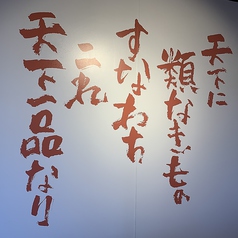 天下に
類なきもの
すなわち
これ
天下一品なり